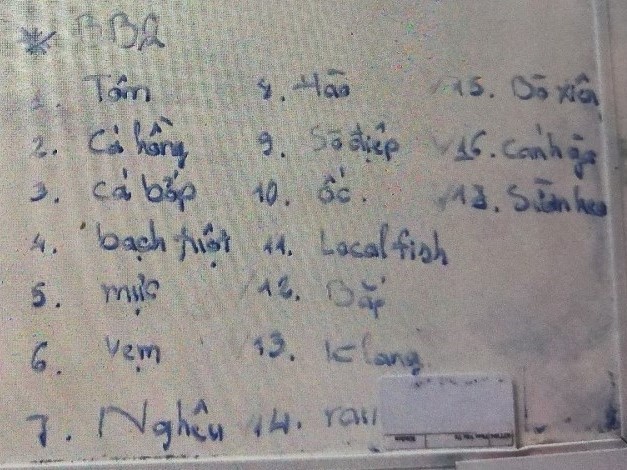 * BBQ
1. Tôm
2. Cá hồng
3. Cá bớp
4. bạch tuột
5. mực
6. Vẹm
7. Nghêu
8. Hào
9. Sò điệp
10. ốc.
11. Local fish
12. Bắp
13. K lang
14. rau
15. Bò xiên
16. Cánh gà
17. Sườn heo